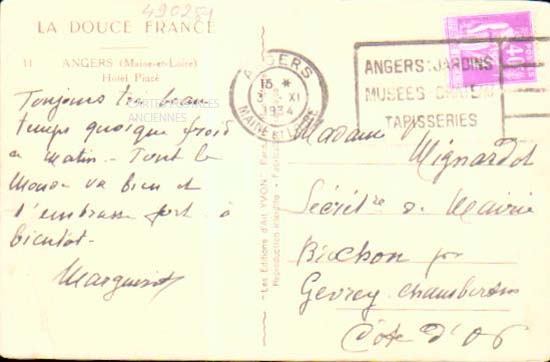 490251
LA DOUCE FRANCE
11 ANGERS (Maine-et-Loire)
Hôtel Pincé
Toujours très beau
temps quoique froid
ce matin - Tout le
Monde va bien et
t'embrasse fort à
bientôt -
CARTES POSTALES
ANCIENNES
"Les Editions d'Art YVON"
Reproduction interdite
ANGERS
15 *
3 XI
1934
MAINE ET LOIRE
ANGERS: JARDINS
MUSÉES CHATEAU
TAPISSERIES
40c
Madame Mignardot
Secrét.re de Mairie
par
Gevrey Chambertin
Côte d'Or